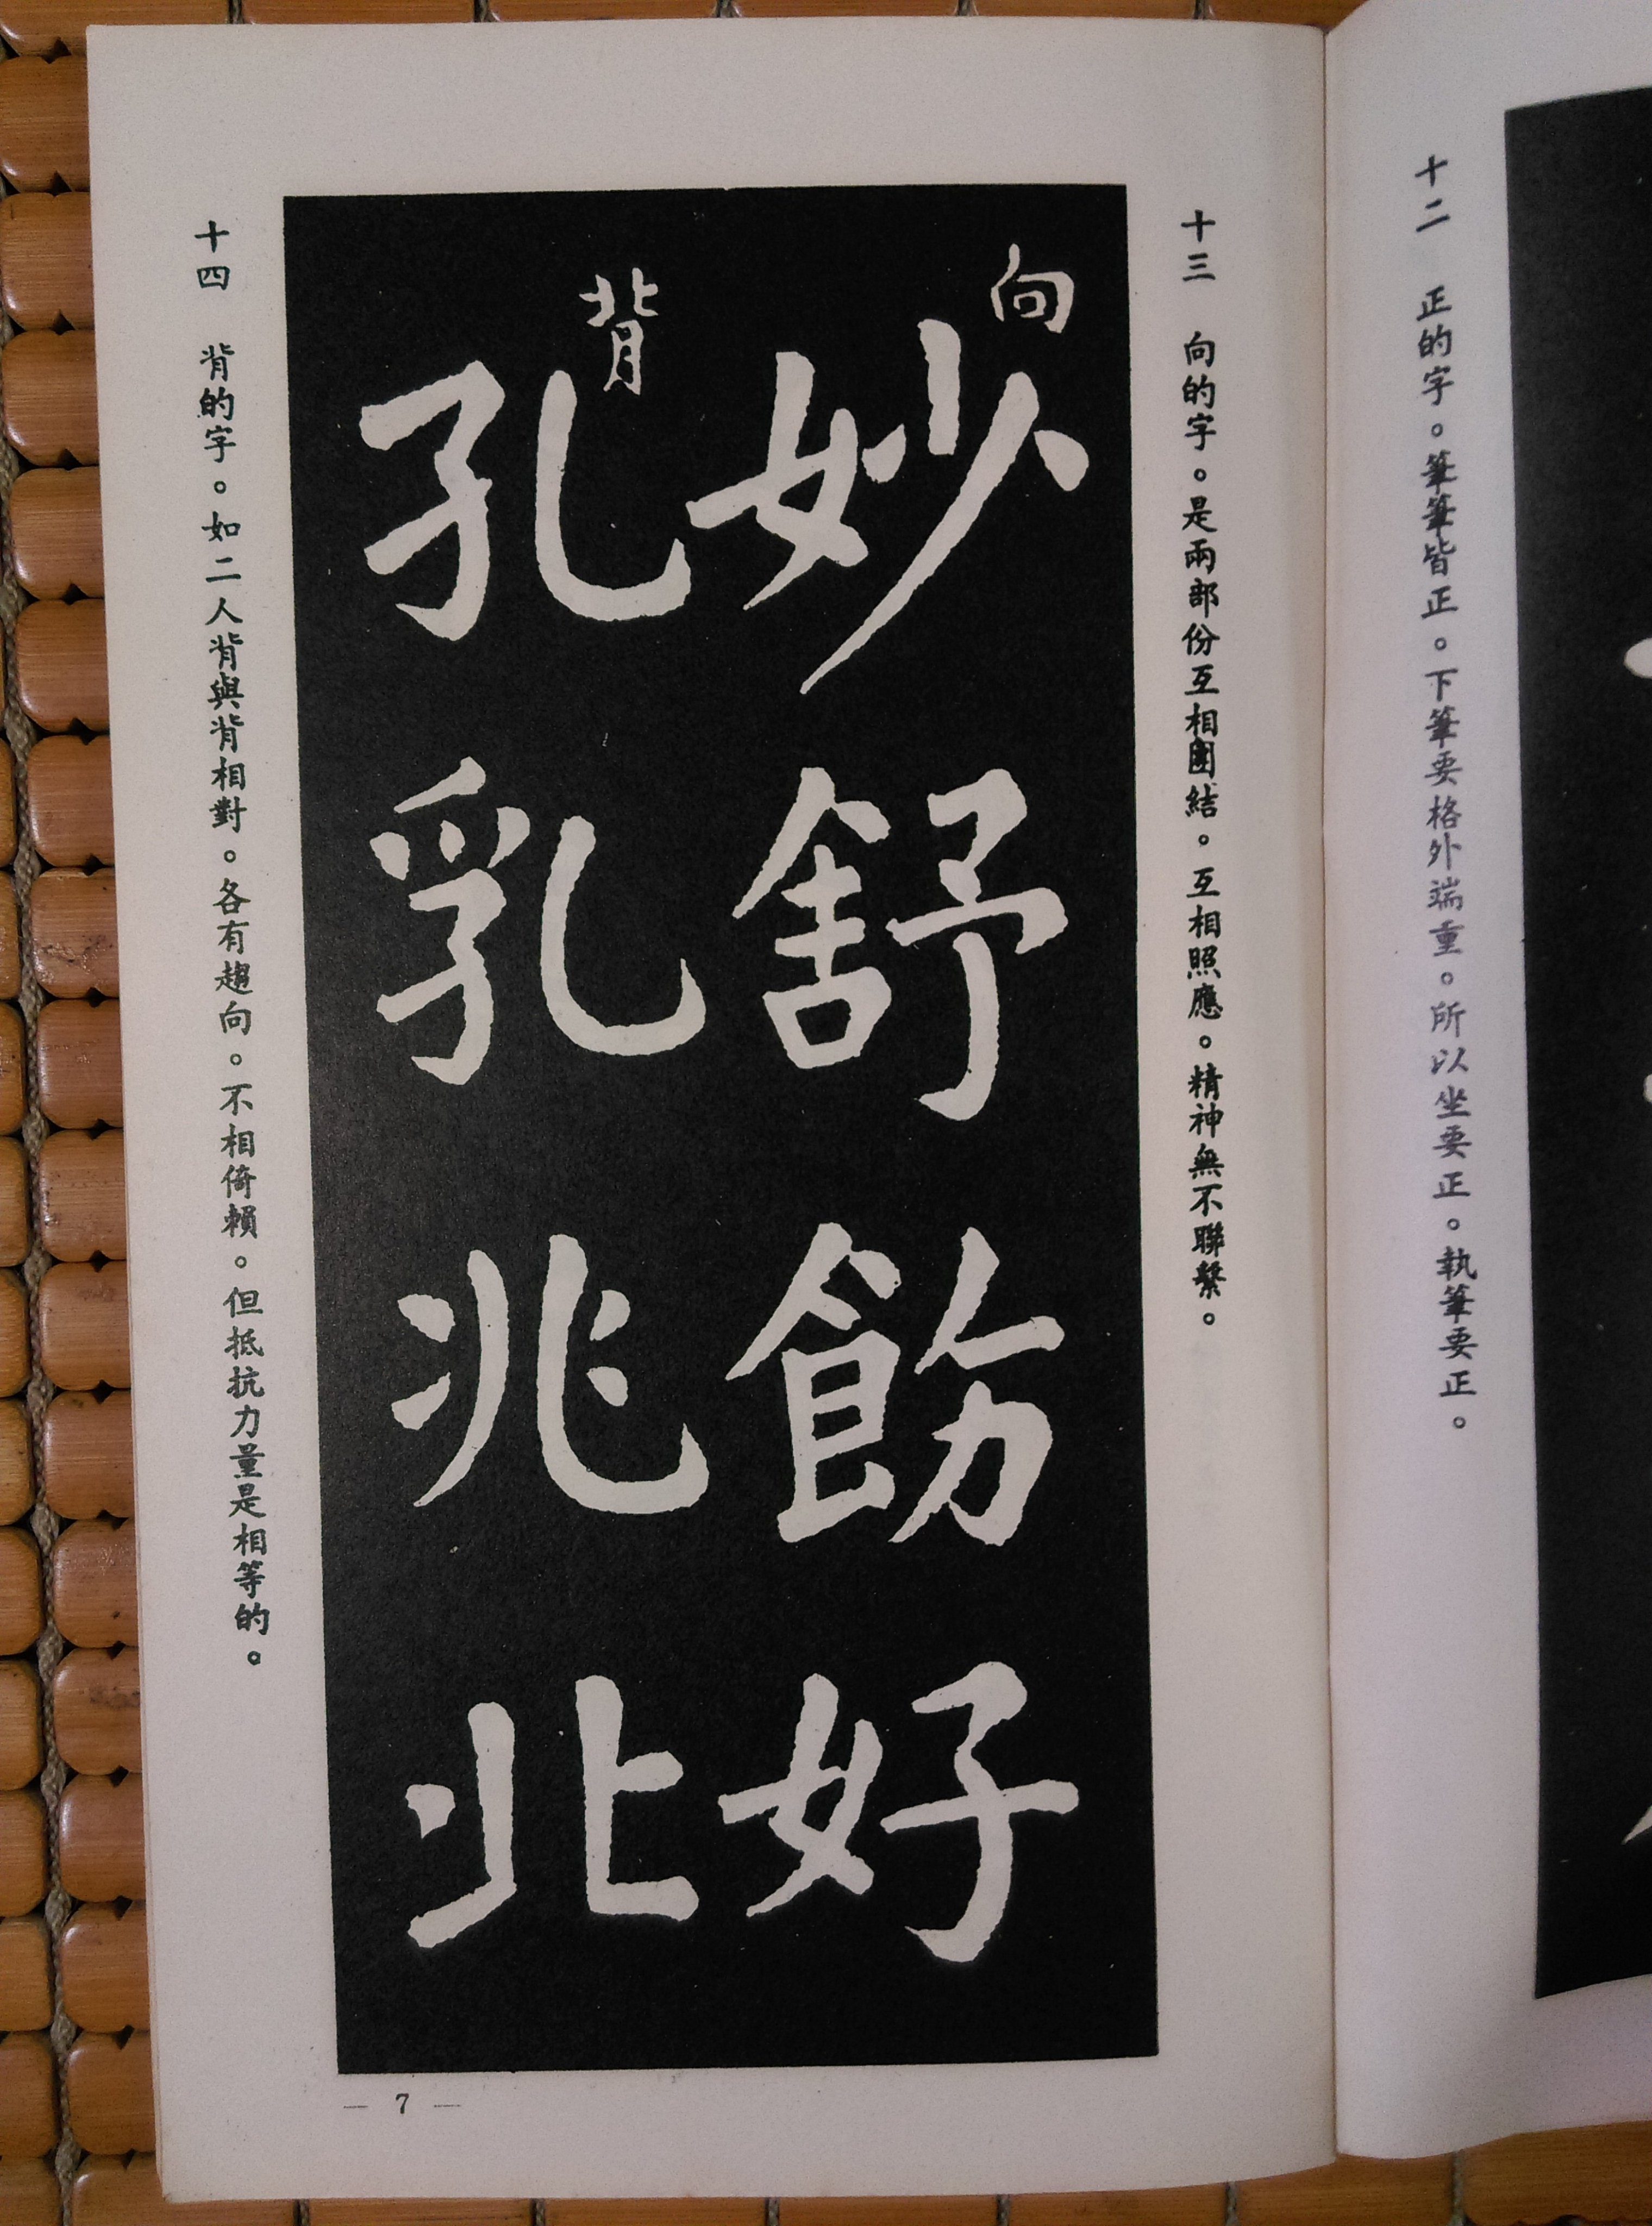 十二　正的字。筆筆皆正。下筆要格外端重。所以坐要正。執筆要正。
十三　向的字。是兩部份互相團結。互相照應。精神無不聯繫。
向
妙舒飭好
背
孔乳兆北
十四　背的字。如二人背與背相對。各有趨向。不相倚賴。但抵抗力量是相等的。
— 7 —